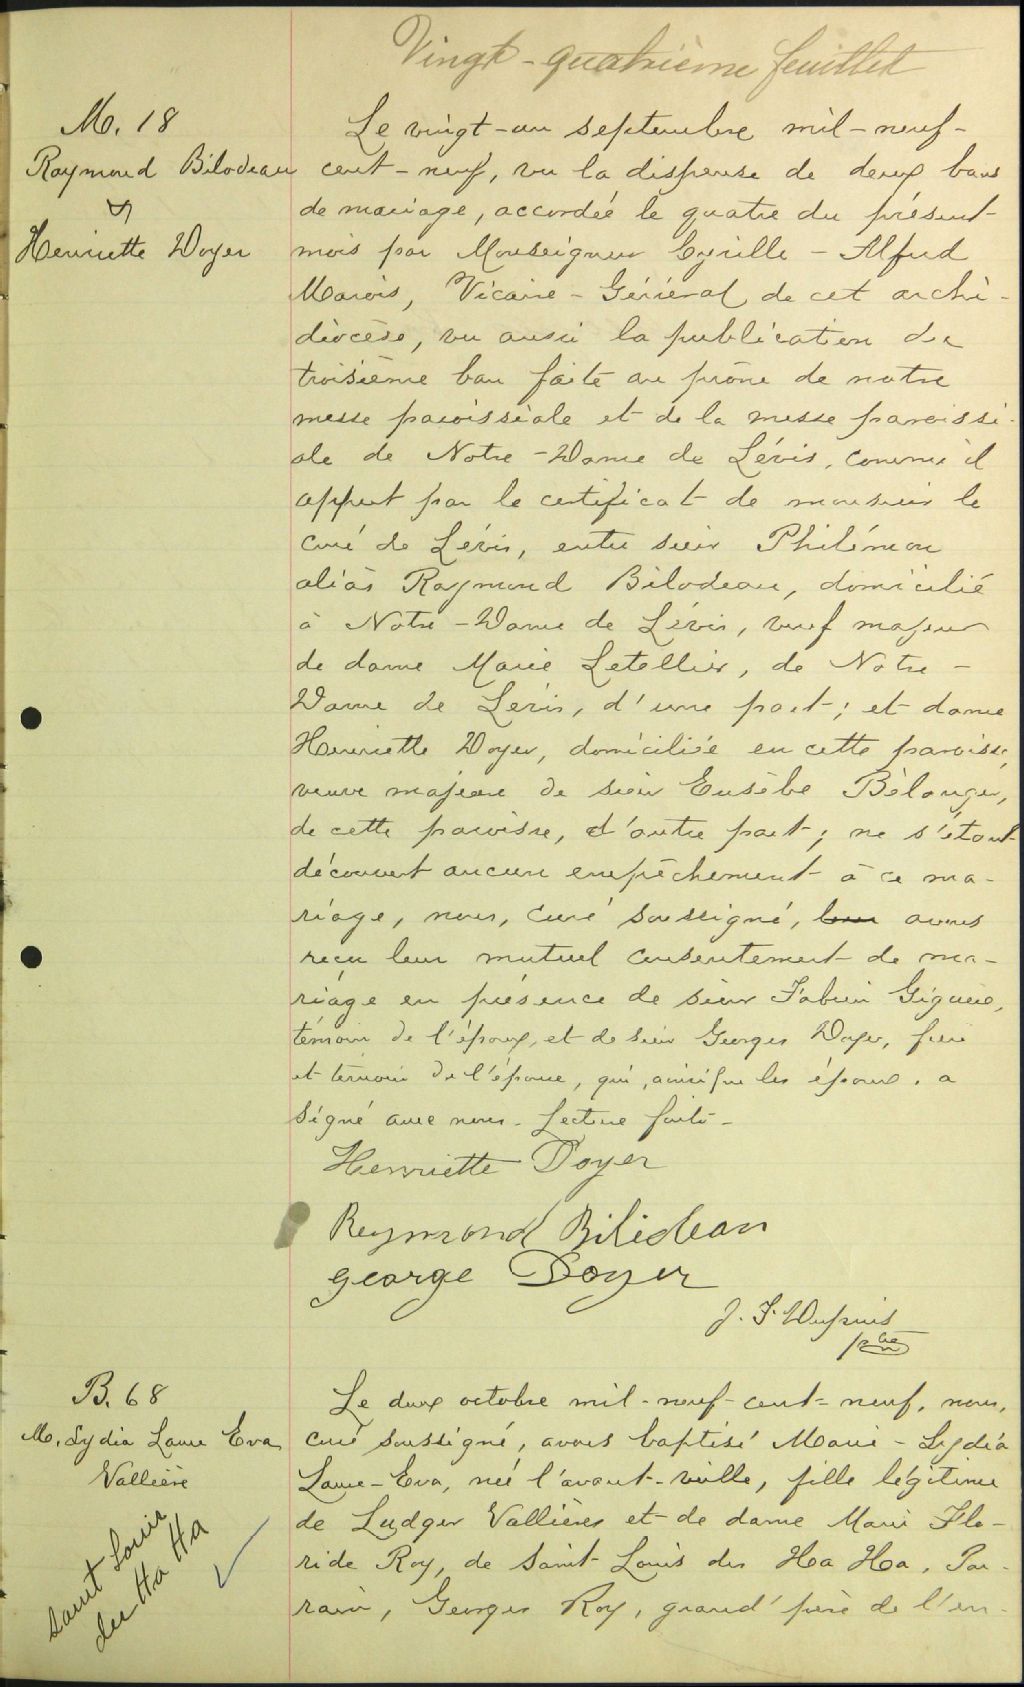 Vingt-quatrième feuillet
M. 18
Raymond Bilodeau
&
Henriette Doyer
Le vingt-un septembre mil-neuf-
cent-neuf, vu la dispense de deux bans
de mariage, accordée le quatre du présent
mois par Monseigneur Cyrille-Alfred
Marois, Vicaire-Général de cet archi-
diocèse, vu aussi la publication du
troisième ban faite au prône de notre
messe paroissiale et de la messe paroissi-
ale de Notre-Dame de Lévis, comme il
appert par le certificat de monsieur le
curé de Lévis, entre sieur Philémon
aliàs Raymond Bilodeau, domicilié
à Notre-Dame de Lévis, veuf majeur
de dame Marie Letellier, de Notre-
Dame de Lévis, d'une part; et dame
Henriette Doyer, domiciliée en cette paroisse,
veuve majeure de sieur Eusèbe Bélanger,
de cette paroisse, d'autre part; ne s'étant
découvert aucun empêchement à ce ma-
riage, nous, curé soussigné, avons
reçu leur mutuel consentement de ma-
riage en présence de sieur Fabien Giguère,
témoin de l'époux, et de sieur Georges Doyer, frère
et témoin de l'épouse, qui, ainsi que les époux, a
signé avec nous. Lecture faite-
Henriette Doyer
Raymond Bilideau
George Doyer
J. F. Dupuis
ptre
B. 68
M. Lydia Laure Eva
Vallière
Saint Louis
du Ha Ha
Le deux octobre mil-neuf-cent-neuf, nous,
curé soussigné, avons baptisé Marie-Lydia
Laure-Eva, née l'avant-veille, fille légitime
de Ludger Vallières et de dame Marie Flo-
ride Roy, de Saint Louis du Ha Ha. Par-
rain, Georges Roy, grand'père de l'en-